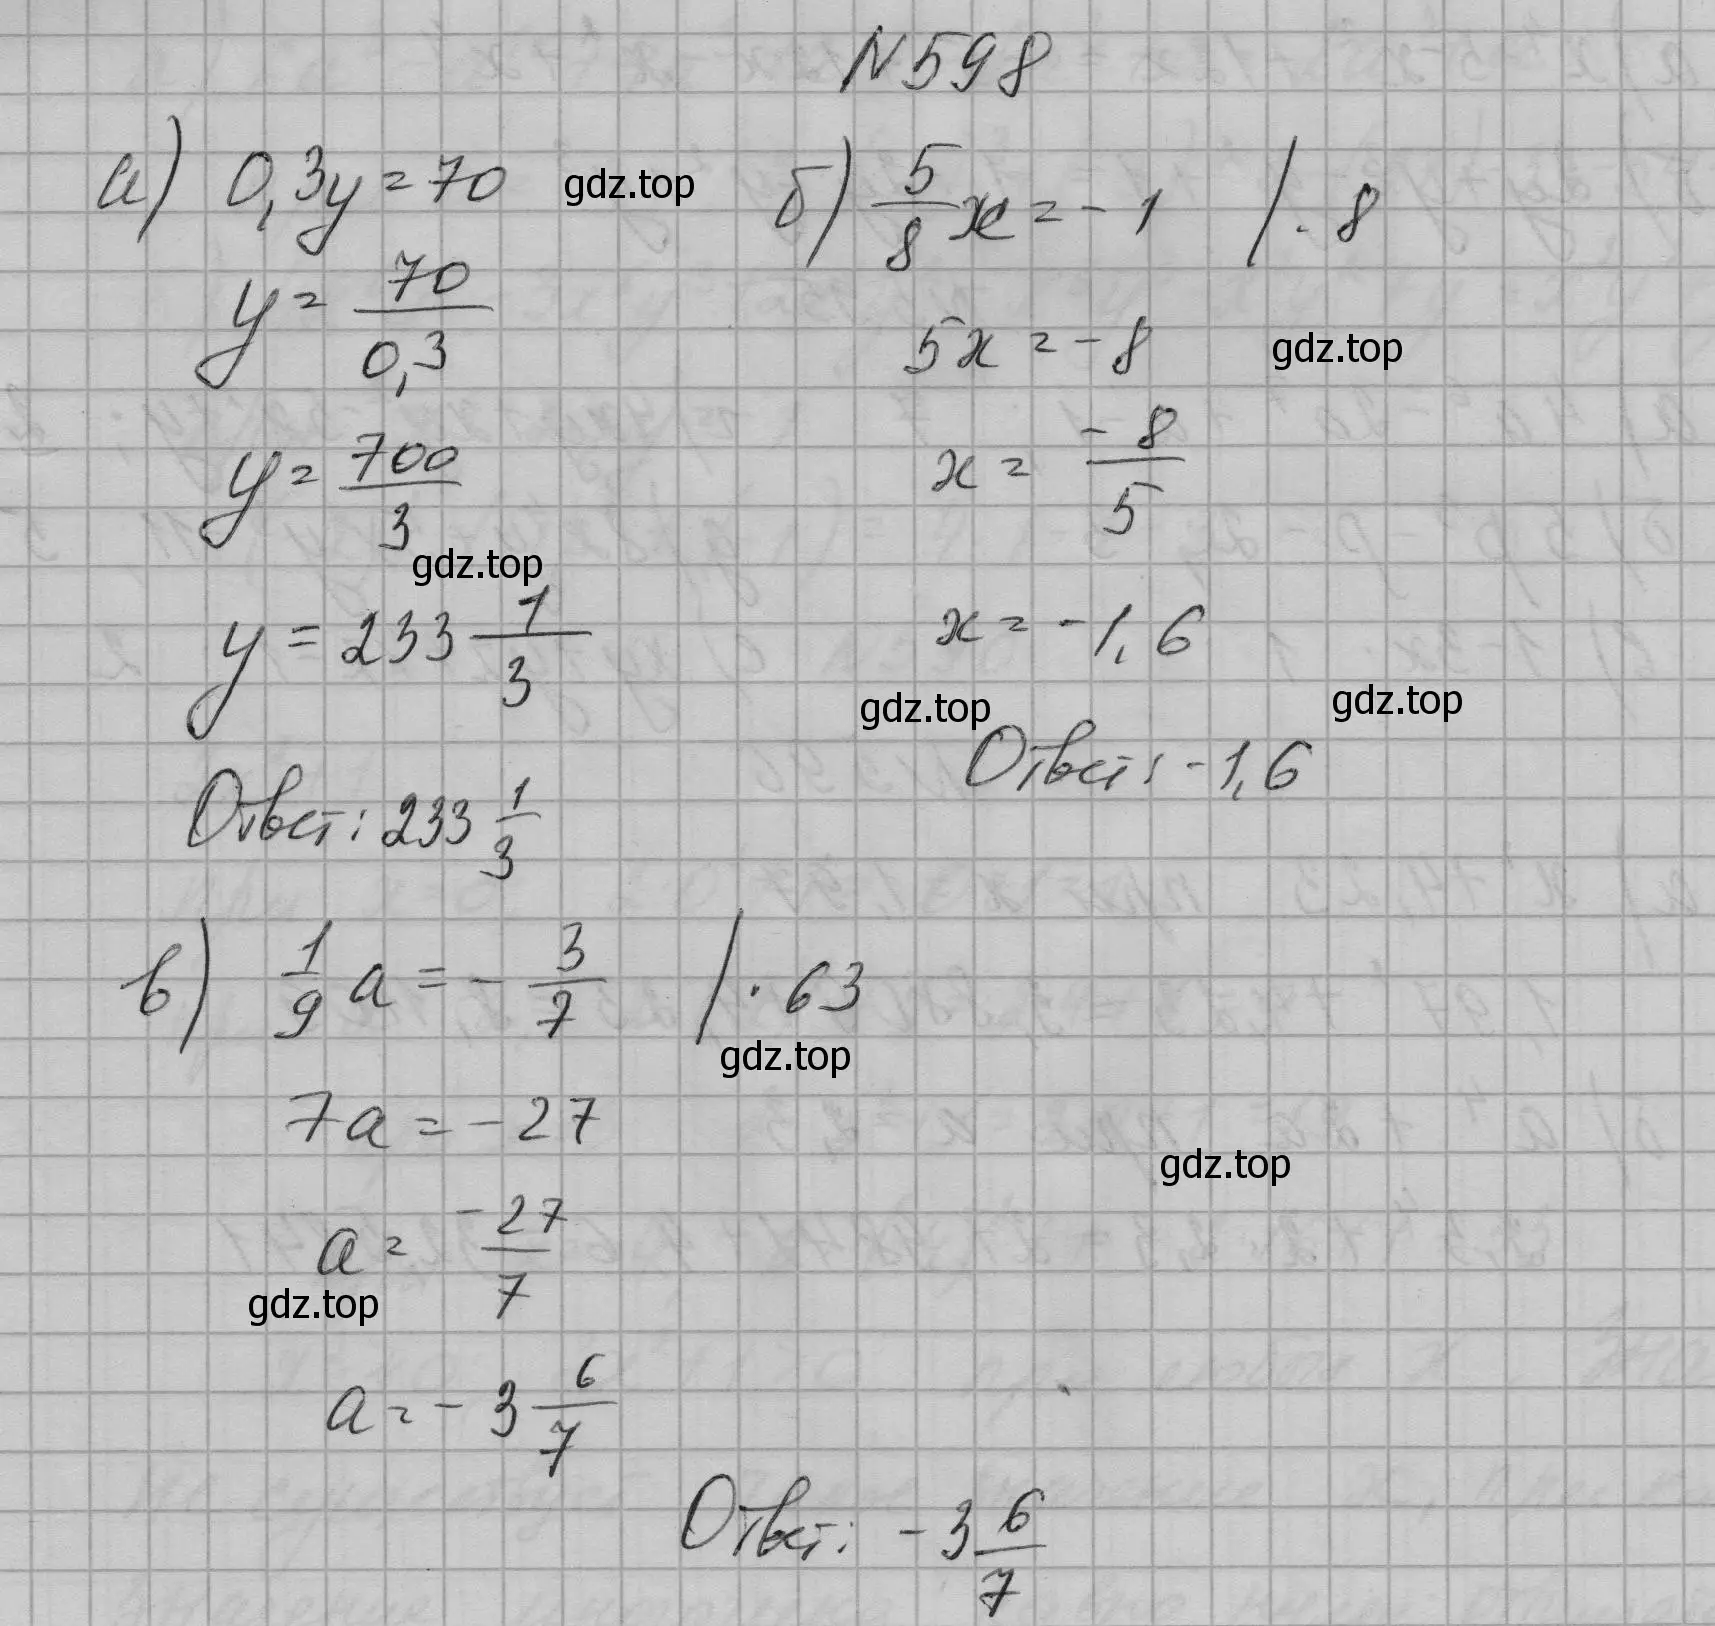 N 598
а) 0,3y = 70
y = 70/0,3
y = 700/3
y = 233 1/3
Ответ: 233 1/3
б) 5/8 x = -1 | · 8
5x = -8
x = -8/5
x = -1,6
Ответ: -1,6
в) 1/9 a = - 3/7 | · 63
7a = -27
a = -27/7
a = -3 6/7
Ответ: -3 6/7
gdz.top
gdz.top
gdz.top
gdz.top
gdz.top
gdz.top
gdz.top
gdz.top